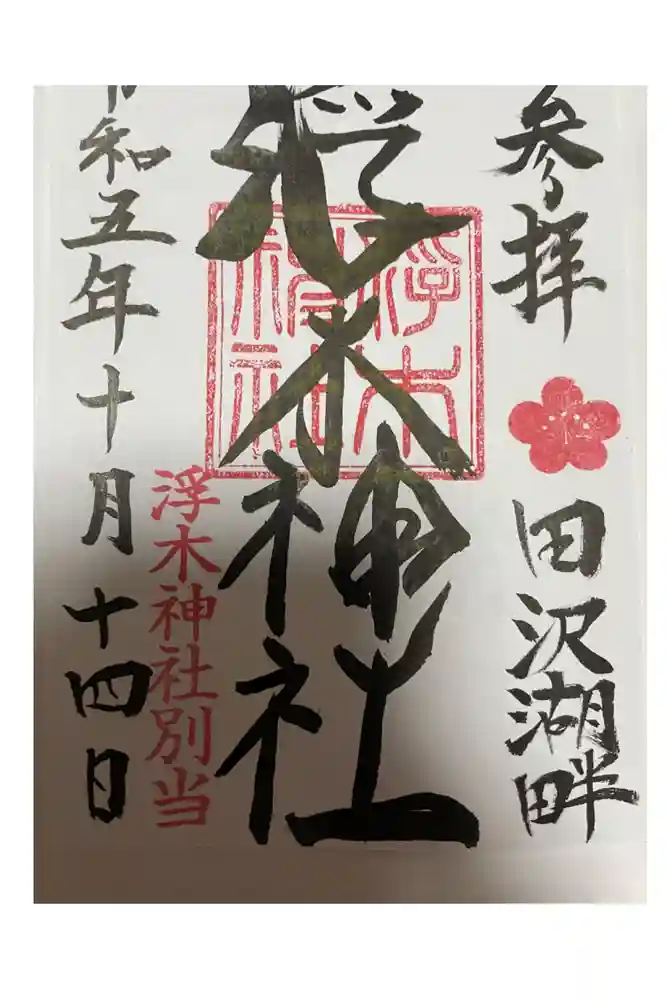 参拝
田沢湖畔
浮木神社
浮木神社別当
令和五年十月十四日